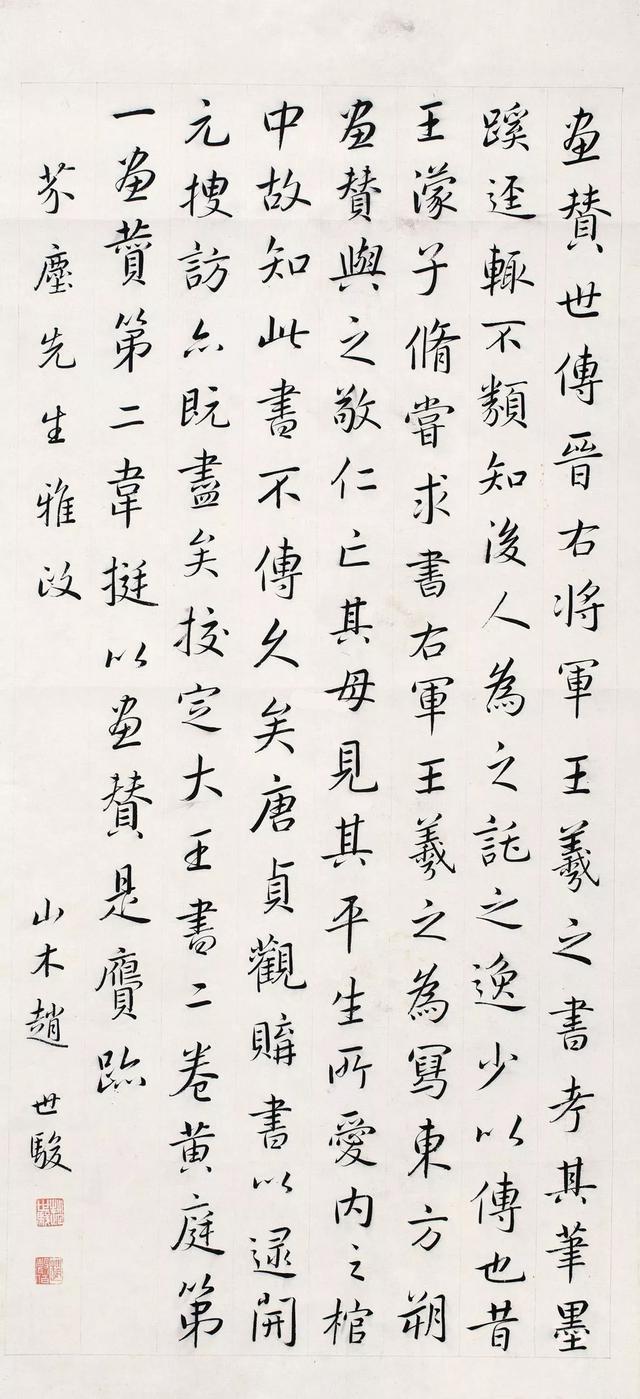 畫賛世傳晉右將軍王羲之書考其筆墨
蹊逕輙不類知後人為之託之逸少以傳也昔
王濛子脩嘗求書右軍王羲之為寫東方朔
畫賛與之敬仁亡其母見其平生所愛内之棺
中故知此書不傳久矣唐貞觀購書以逯開
元搜訪亦既盡矣挍定大王書二卷黄庭第
一畫賛第二韋挺以畫賛是贗跡
芥塵先生雅政
山木趙世駿